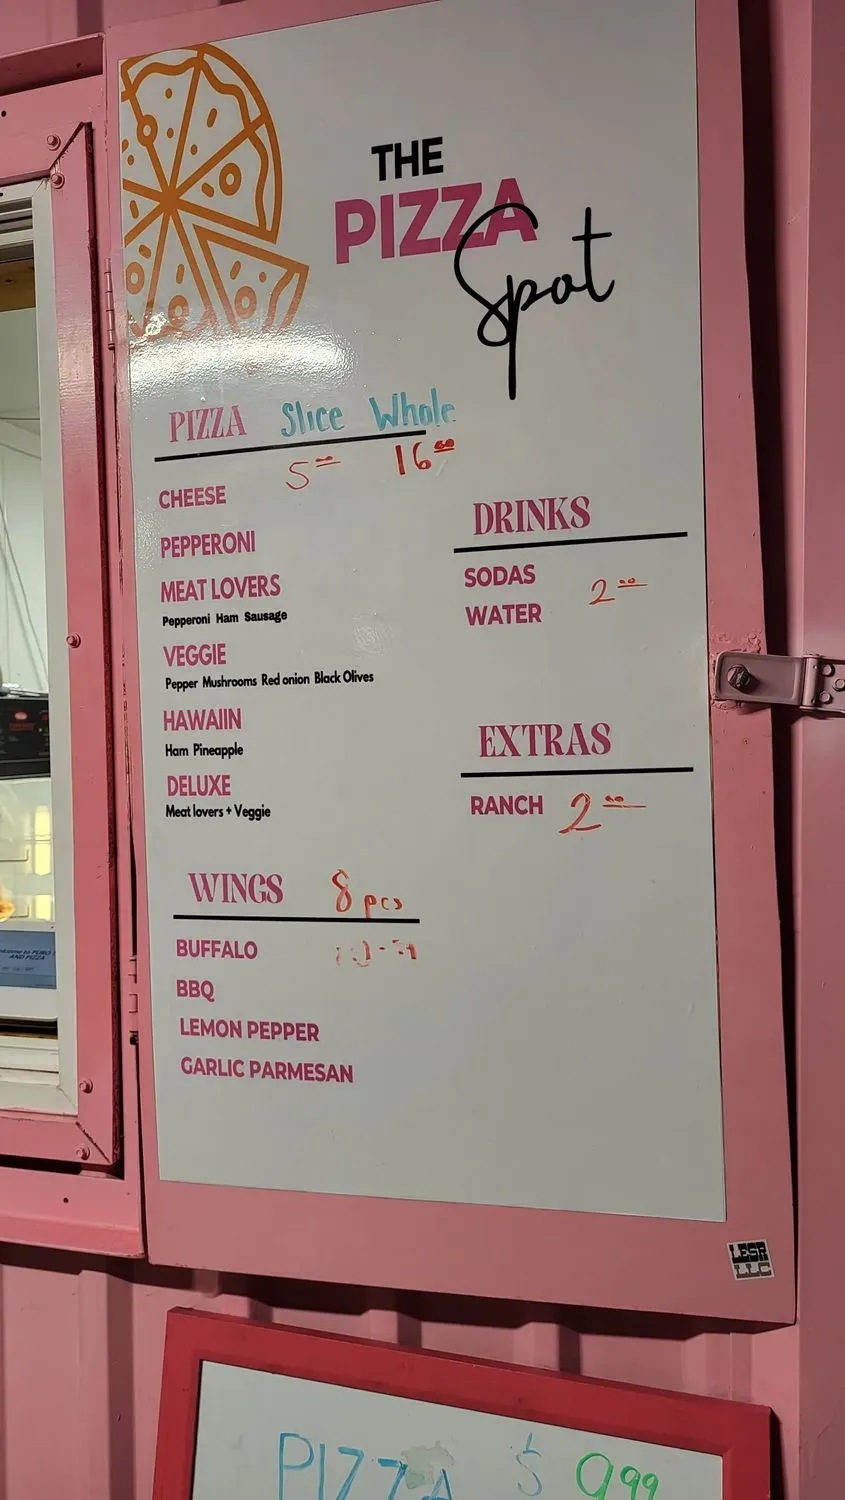 THE
PIZZA
Spot
PIZZA Slice Whole
5.00 16.00
CHEESE
PEPPERONI
MEAT LOVERS
Pepperoni Ham Sausage
VEGGIE
Pepper Mushrooms Red onion Black Olives
HAWAIIN
Ham Pineapple
DELUXE
Meat lovers + Veggie
WINGS 8 pcs
BUFFALO
BBQ
LEMON PEPPER
GARLIC PARMESAN
DRINKS
SODAS 2.00
WATER
EXTRAS
RANCH 2.00
AND PIZZA
LESR
LLC
PIZZA $ 999